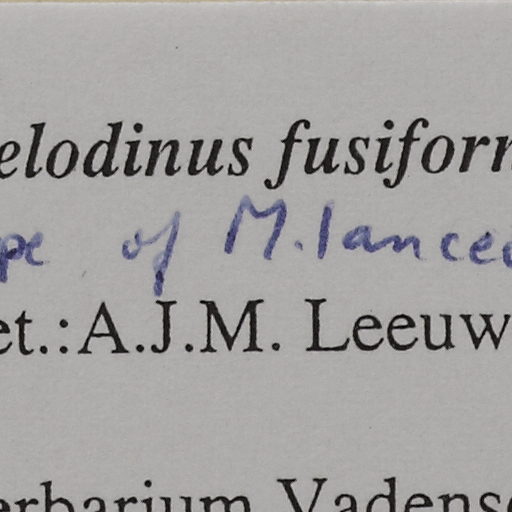 elodinus fusiform
pe of M. lanceo
et.: A.J.M. Leeuw
erbarium Vadense